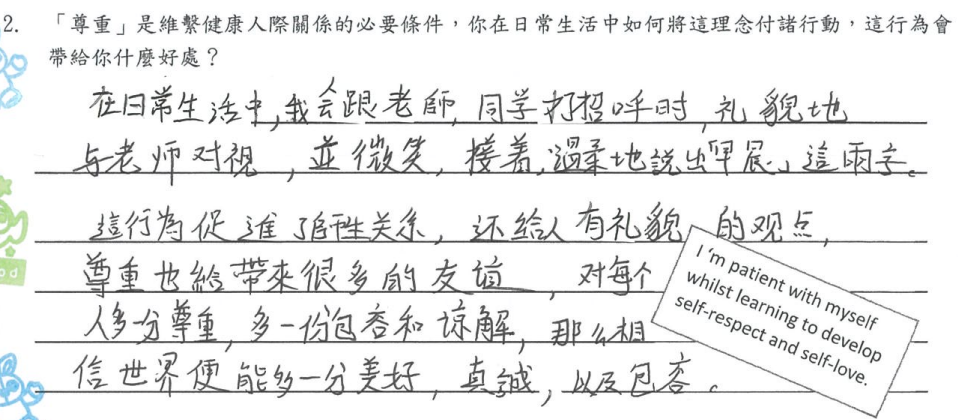 2. 「尊重」是維繫健康人際關係的必要條件，你在日常生活中如何將這理念付諸行動，這行為會
帶給你什麼好處？
在日常生活中,我会跟老師,同学打招呼时,礼貌地
与老师对視，並微笑，接着,温柔地説出「早晨」這兩字。
這行為促進了陌性关系，还給人有礼貌的观点，
尊重也給帶來很多的友誼，对每个
人多分尊重，多一份包容和諒解，那么相
信世界便能多一分美好，真誠，以及包容。
I 'm patient with myself
whilst learning to develop
self-respect and self-love.